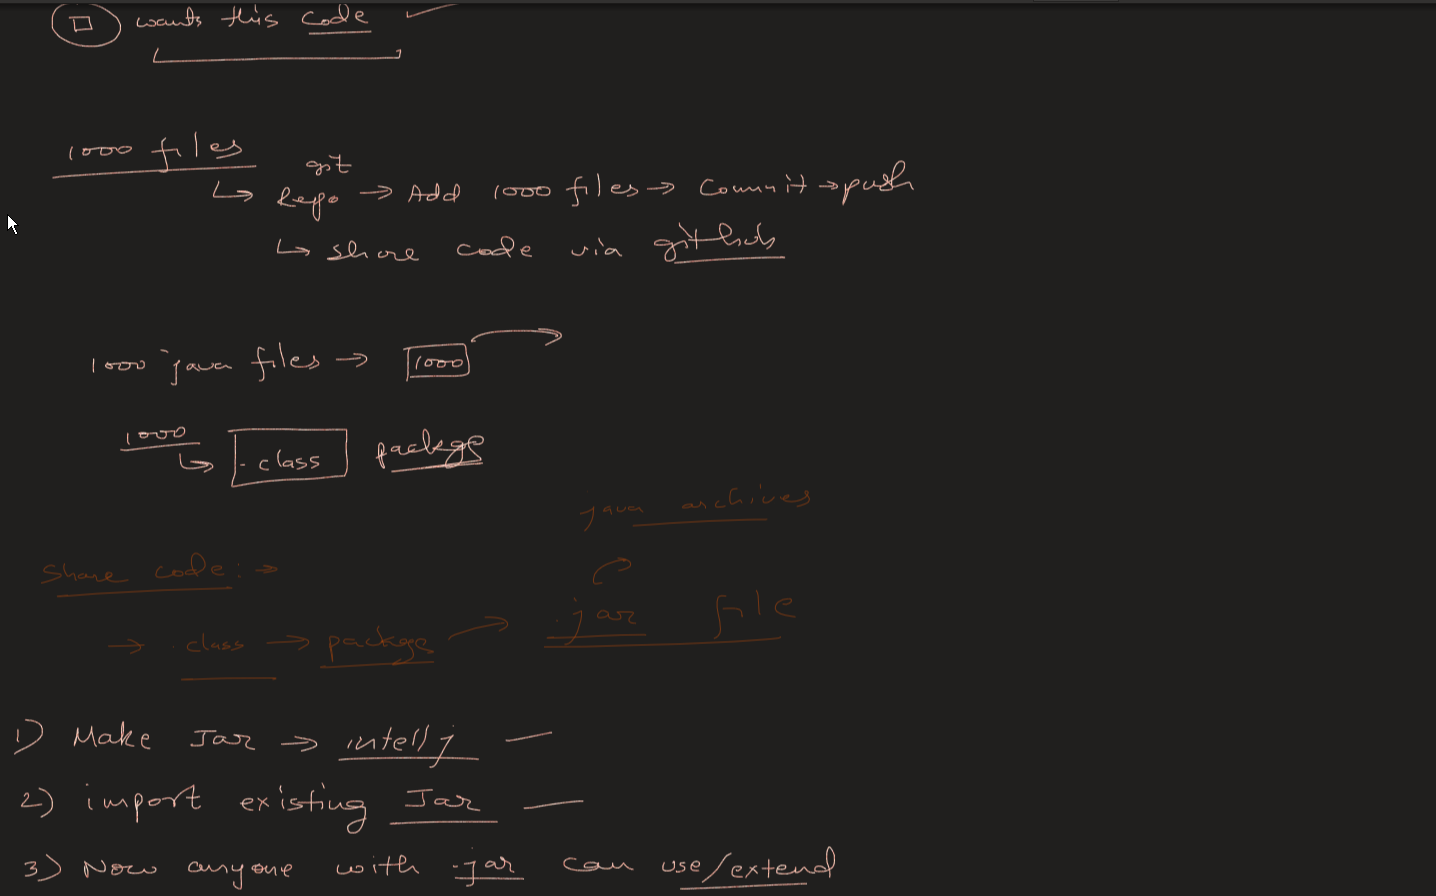 wants this code
1000 files
git
Repo → Add 1000 files → Commit → push
↳ share code via github
1000 java files → 1000
1000
↳ .class package
java archives
Share code: →
→ .class → package → .jar file
1) Make Jar → intellj
2) import existing Jar
3) Now anyone with .jar can use/extend